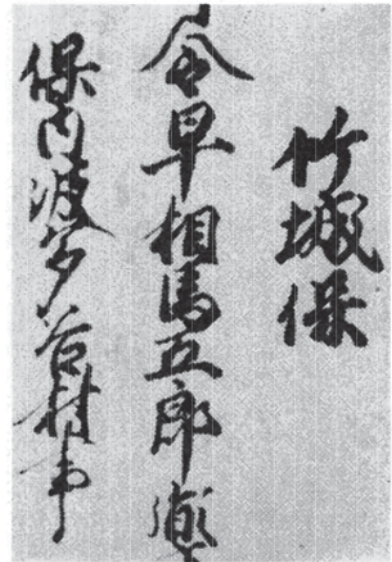 竹城保
令早相馬五郎胤
保内波多谷村事